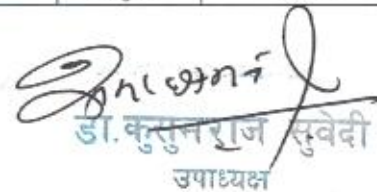 डा. कुसुमराज सुवेदी
उपाध्यक्ष